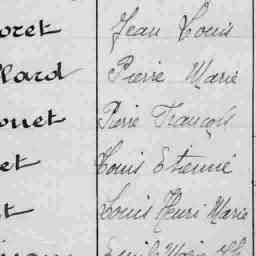 oret Jean Louis
llard Pierre Marie
ouet Pierre François
et Louis Etienne
t Louis Henri Marie